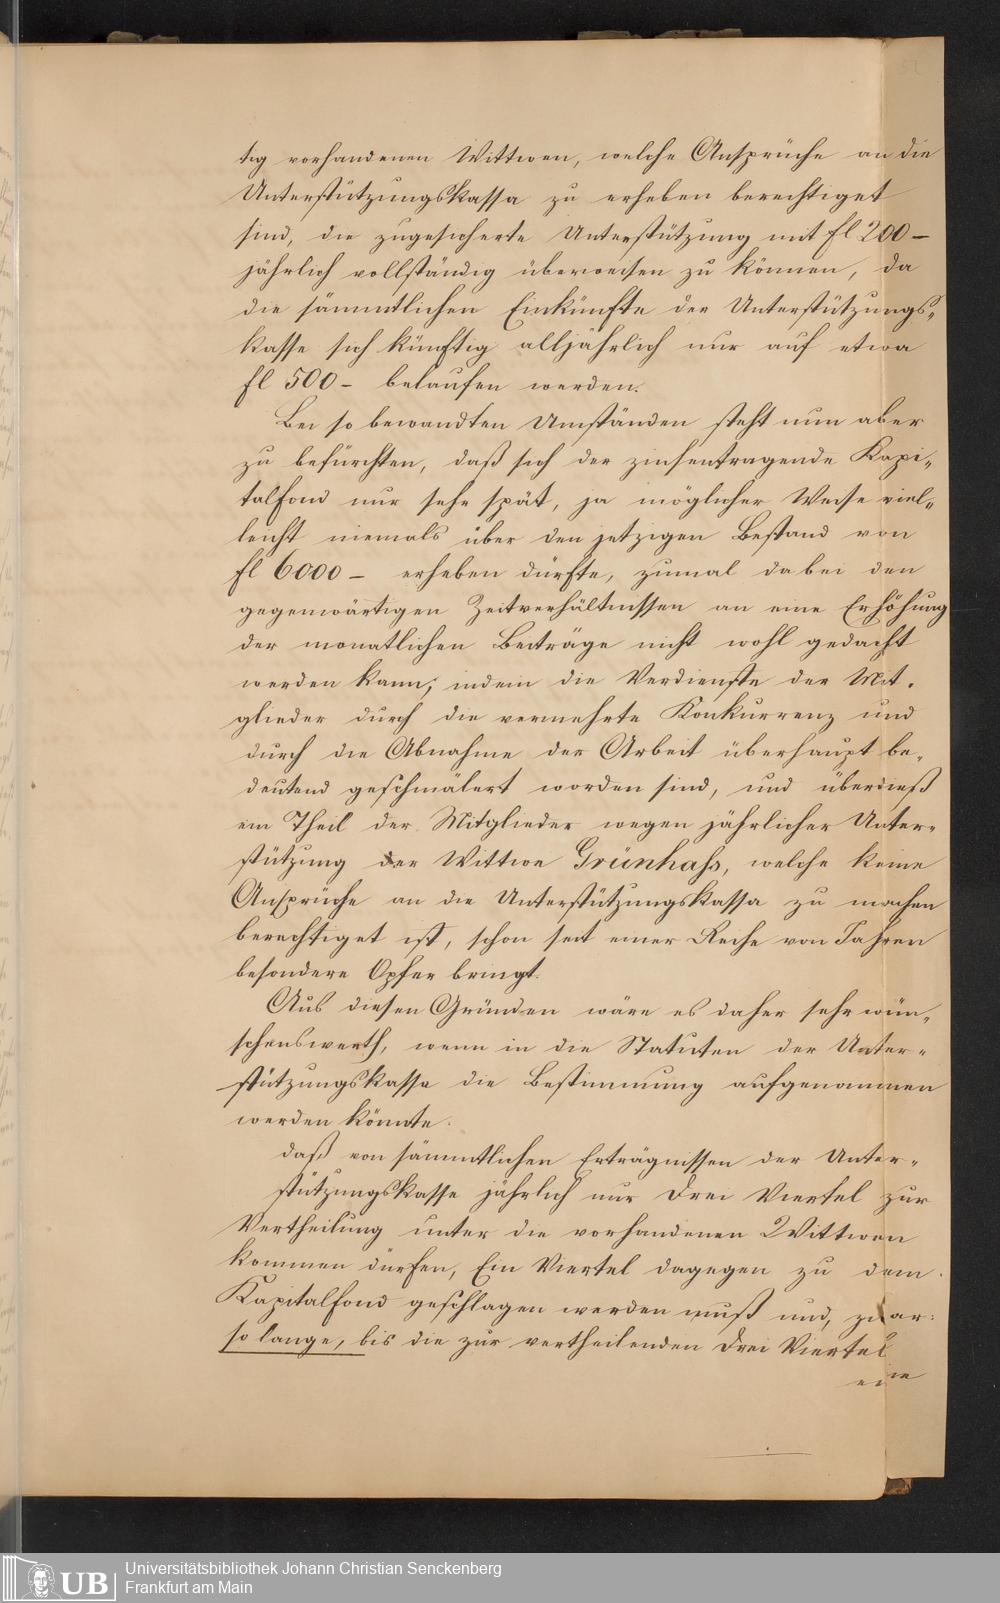 52
tig vorhandenen Wittwen, welche Ansprüche an die
Unterstützungskassa zu erheben berechtiget
sind, die zugesicherte Unterstützung mit fl 200 –
jährlich vollständig überweisen zu können, da
die sämmtlichen Einkünfte der Unterstützungs„
kasse sich künftig alljährlich nur auf etwa
fl 500 – belaufen werden.
Bei so bewandten Umständen steht nun aber
zu befürchten, daß sich der zinsentragende Kapi„
talfond nur sehr spät, ja möglicher Weise viel„
leicht niemals über den jetzigen Bestand von
fl 6000 – erheben dürfte, zumal da bei den
gegenwärtigen Zeitverhältnissen an eine Erhöhung
der monatlichen Beiträge nicht wohl gedacht
werden kann; indem die Verdienste der Mit-
glieder durch die vermehrte Konkurrenz und
durch die Abnahme der Arbeit überhaupt be„
deutend geschmälert worden sind, und überdieß
ein Theil der Mitglieder wegen jährlicher Unter„
stützung der Wittwe Grünhass, welche keine
Ansprüche an die Unterstützungskassa zu machen
berechtiget ist, schon seit einer Reihe von Jahren
besondere Opfer bringt.
Aus diesen Gründen wäre es daher sehr wün„
schenswerth, wenn in die Statuten der Unter„
stützungskassa die Bestimmung aufgenommen
werden könnte:
daß von sämmtlichen Erträgnissen der Unter„
stützungskasse jährlich nur Drei Viertel zur
Vertheilung unter die vorhandenen Wittwen
kommen dürfen, Ein Viertel dagegen zu dem
Kapitalfond geschlagen werden muß und, zwar:
so lange, bis die zur vertheilenden Drei Viertel
eine
UB
Universitätsbibliothek Johann Christian Senckenberg
Frankfurt am Main